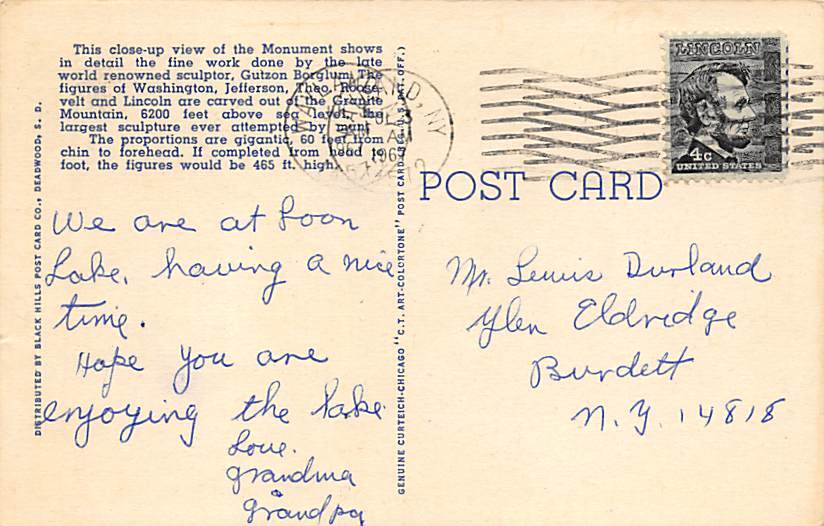 This close-up view of the Monument shows
in detail the fine work done by the late
world renowned sculptor, Gutzon Borglum. The
figures of Washington, Jefferson, Theo. Roose-
velt and Lincoln are carved out of the Granite
Mountain, 6200 feet above sea level, the
largest sculpture ever attempted by man.
The proportions are gigantic, 60 feet from
chin to forehead. If completed from head to
foot, the figures would be 465 ft. high.
DISTRIBUTED BY BLACK HILLS POST CARD CO., DEADWOOD, S. D.
We are at Loon
Lake, having a nice
time.
Hope you are
enjoying the lake
Love.
Grandma
&
Grandpa
GENUINE CURTEICH-CHICAGO "C.T. ART-COLORTONE" POST CARD (REG. U.S. PAT. OFF.)
NY
AM
LINCOLN
4c
UNITED STATES
POST CARD
Mr. Lewis Durland
Glen Eldridge
Burdett
N.Y. 14818